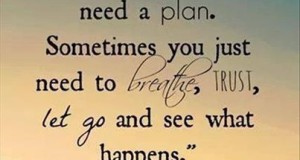 need a plan.
Sometimes you just
need to breathe, TRUST,
let go and see what
happens."